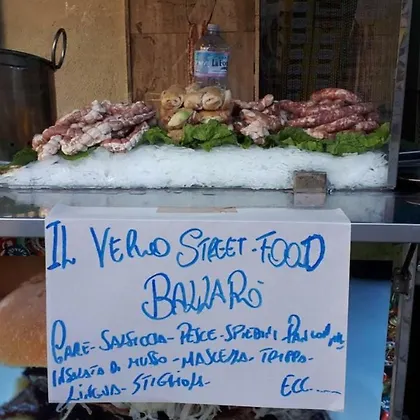 IL VERO STREET-FOOD
BALLARÒ
CARNE-SALSICCIA-PESCE-SPIEDINI
INSALATA DI MUSSO-MASCELLA-TRIPPA-
LINGUA-STIGHIOLA- ECC.....